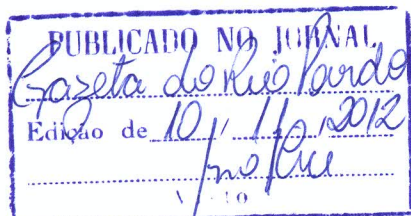 PUBLICADO NO JORNAL
Gazeta do Rio Pardo
Edição de 10 / 11 / 2012